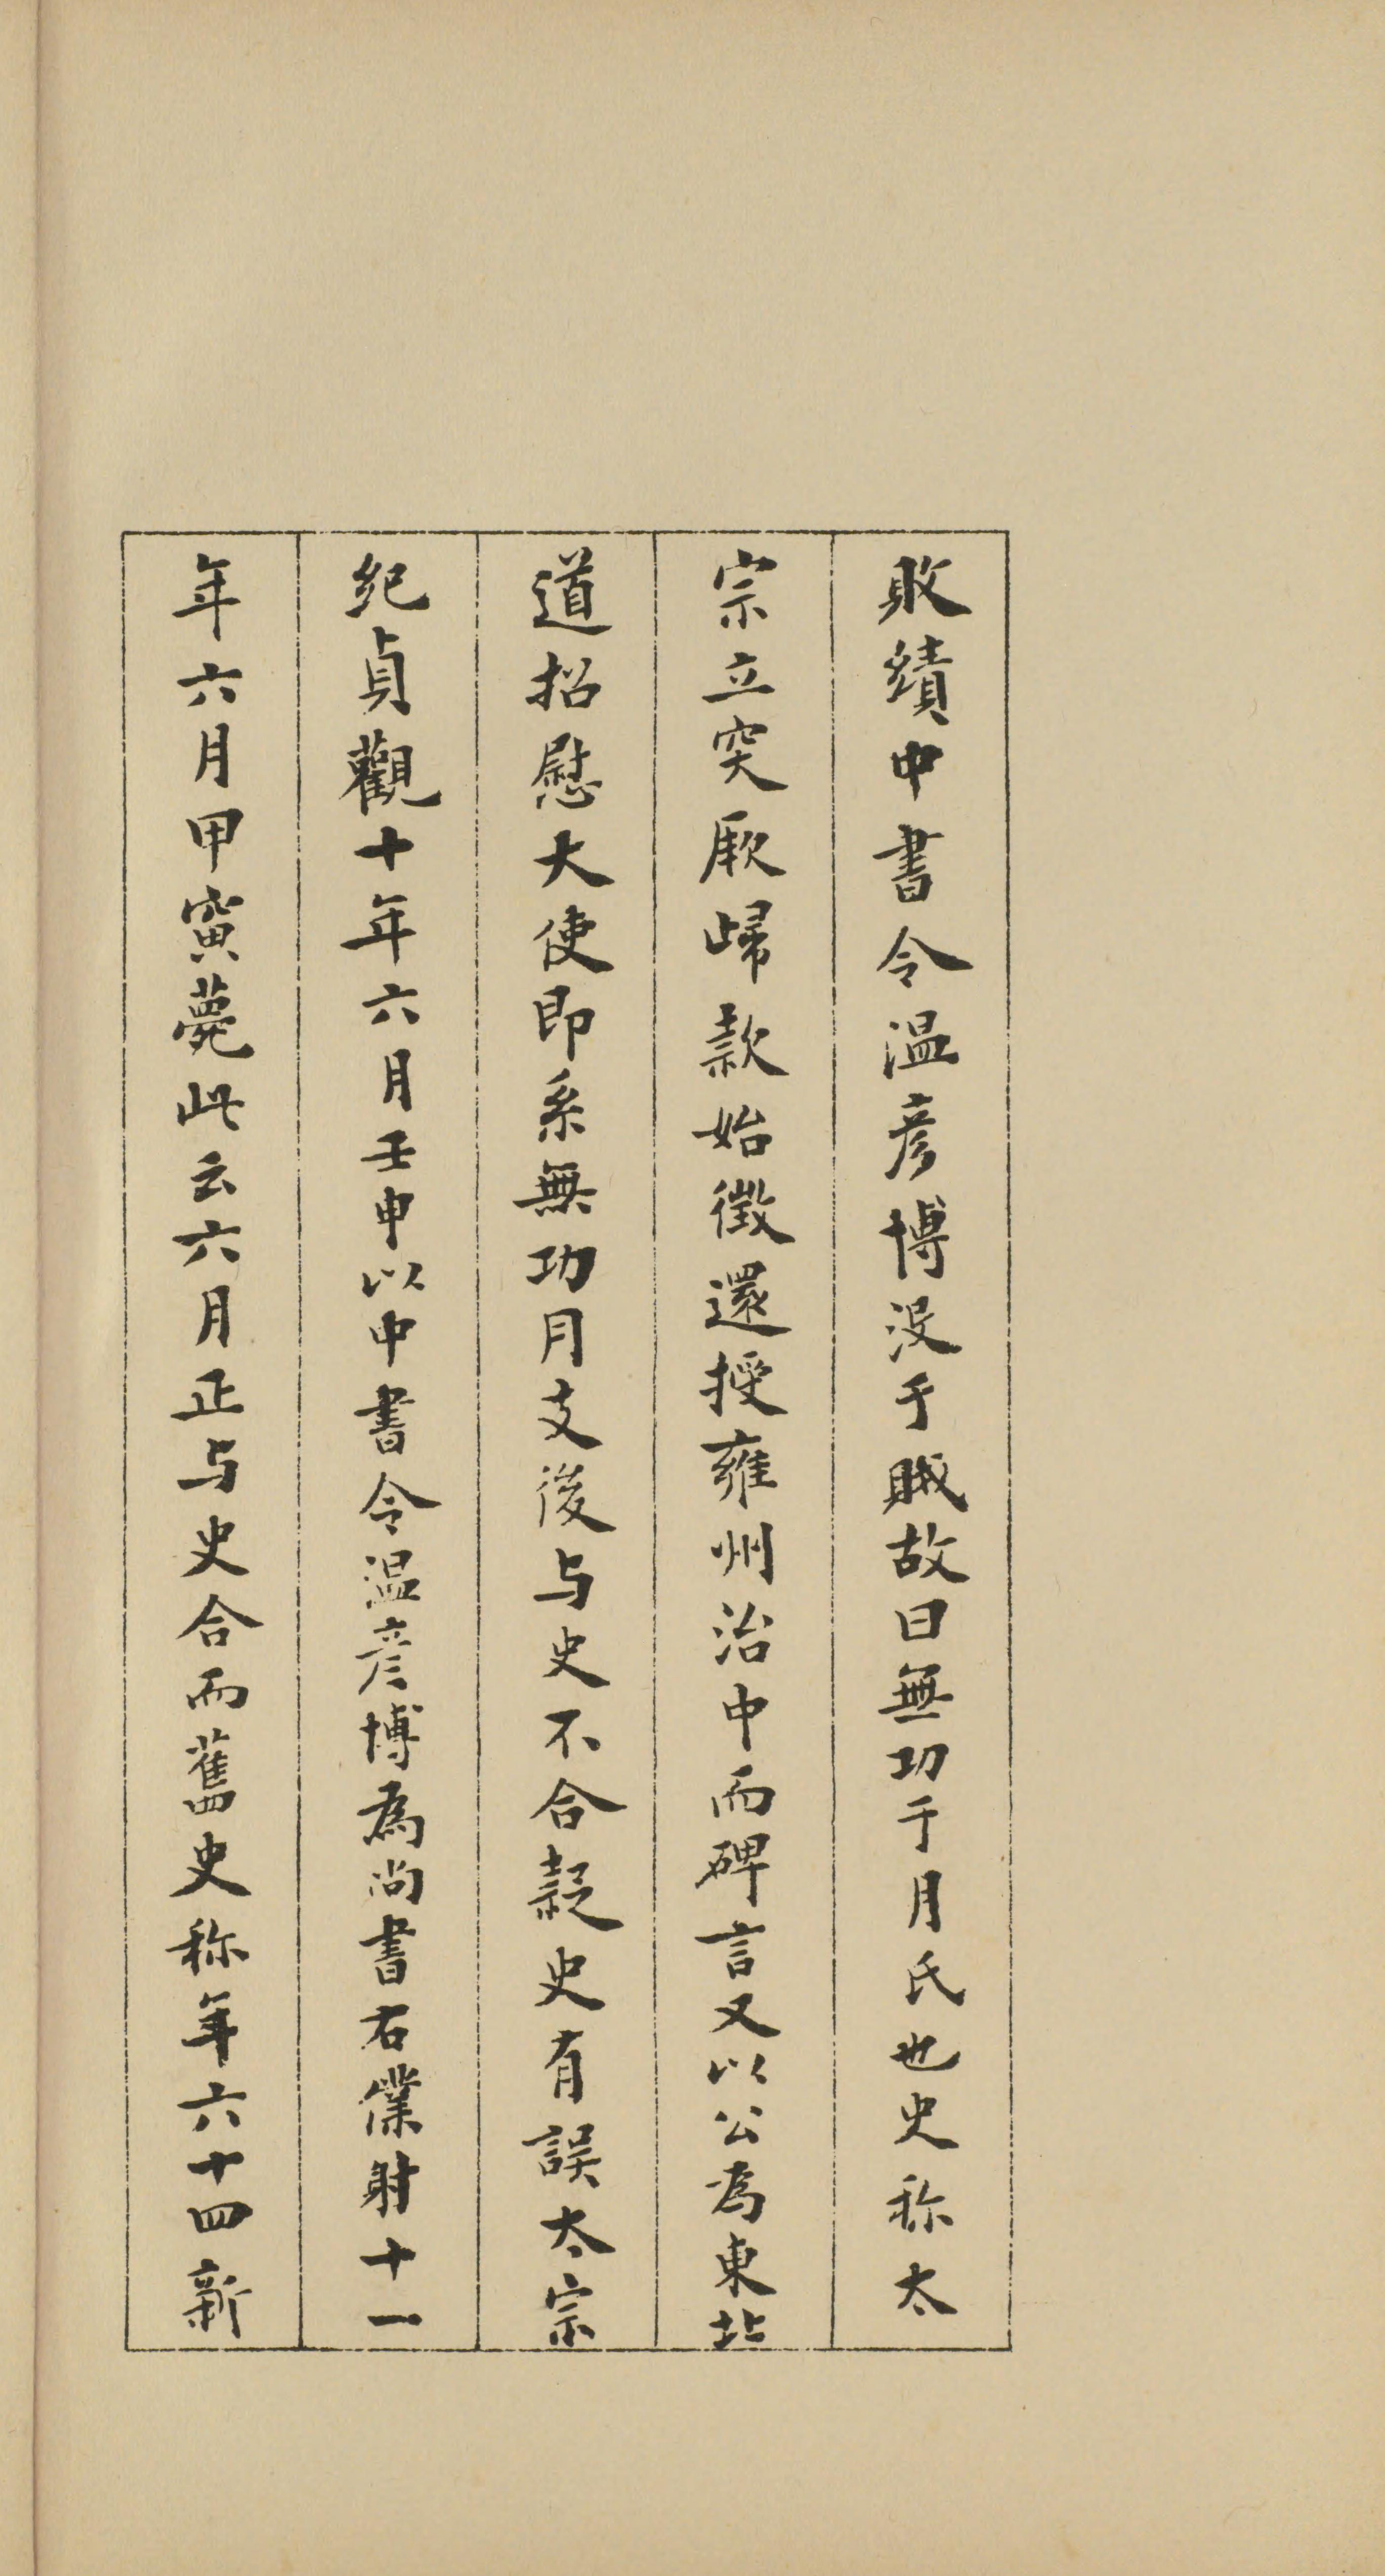 敗績中書令温彦博没于賊故曰無功于月氏也史称太
宗立突厥歸款始徴還授雍州治中而碑言又以公為東北
道招慰大使即系無功月支後与史不合疑史有誤太宗
紀貞觀十年六月壬申以中書令温彦博為尚書右僕射十一
年六月甲寅薨此云六月正与史合而舊史称年六十四新